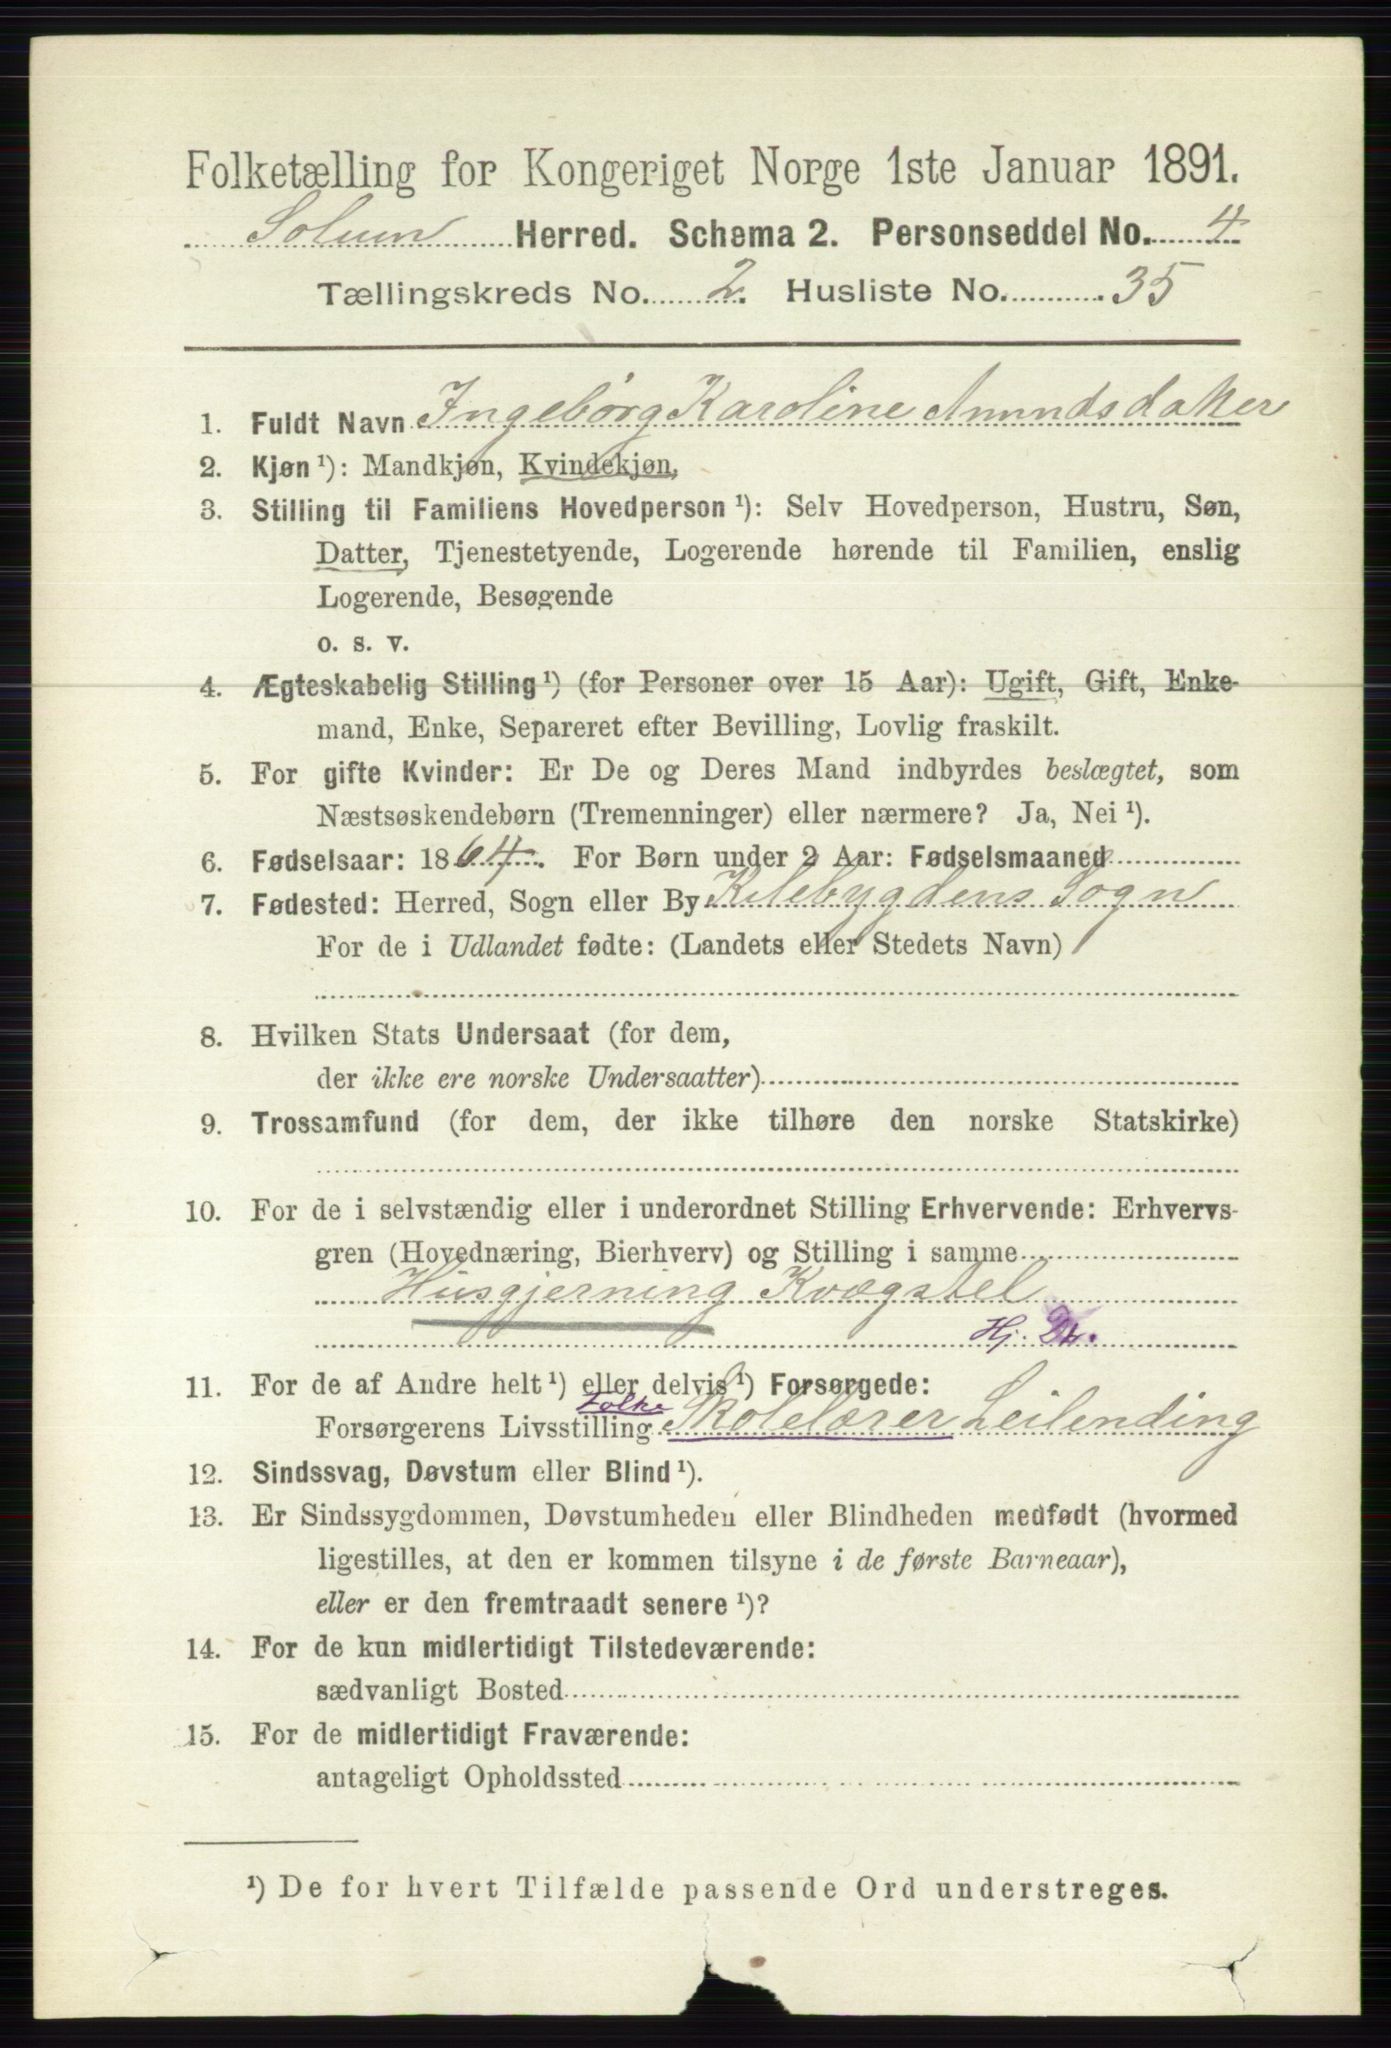 Folketælling for Kongeriget Norge 1ste Januar 1891.
Solum Herred. Schema 2. Personseddel No. 4
Tællingskreds No. 2. Husliste No. 35
1. Fuldt Navn Ingebørg Karoline Amundsdaker
2. Kjøn ¹): Mandkjøn, Kvindekjøn,
3. Stilling til Familiens Hovedperson ¹): Selv Hovedperson, Hustru, Søn,
Datter, Tjenestetyende, Logerende hørende til Familien, enslig
Logerende, Besøgende
o. s. v.
4. Ægteskabelig Stilling ¹) (for Personer over 15 Aar): Ugift, Gift, Enke-
mand, Enke, Separeret efter Bevilling, Lovlig fraskilt.
5. For gifte Kvinder: Er De og Deres Mand indbyrdes beslægtet, som
Næstsøskendebørn (Tremenninger) eller nærmere? Ja, Nei ¹).
6. Fødselsaar: 1864. For Børn under 2 Aar: Fødselsmaaned
7. Fødested: Herred, Sogn eller By Kilebygdens Sogn
For de i Udlandet fødte: (Landets eller Stedets Navn)
8. Hvilken Stats Undersaat (for dem,
der ikke ere norske Undersaatter)
9. Trossamfund (for dem, der ikke tilhøre den norske Statskirke)
10. For de i selvstændig eller i underordnet Stilling Erhvervende: Erhvervs-
gren (Hovednæring, Bierhverv) og Stilling i samme
Husgjerning Kvægstel
Hj. Dt.
11. For de af Andre helt ¹) eller delvis ¹) Forsørgede:
Folke
Forsørgerens Livsstilling Skolelærer Leilending
12. Sindssvag, Døvstum eller Blind ¹).
13. Er Sindssygdommen, Døvstumheden eller Blindheden medfødt (hvormed
ligestilles, at den er kommen tilsyne i de første Barneaar),
eller er den fremtraadt senere ¹)?
14. For de kun midlertidigt Tilstedeværende:
sædvanligt Bosted
15. For de midlertidigt Fraværende:
antageligt Opholdssted
¹) De for hvert Tilfælde passende Ord understreges.